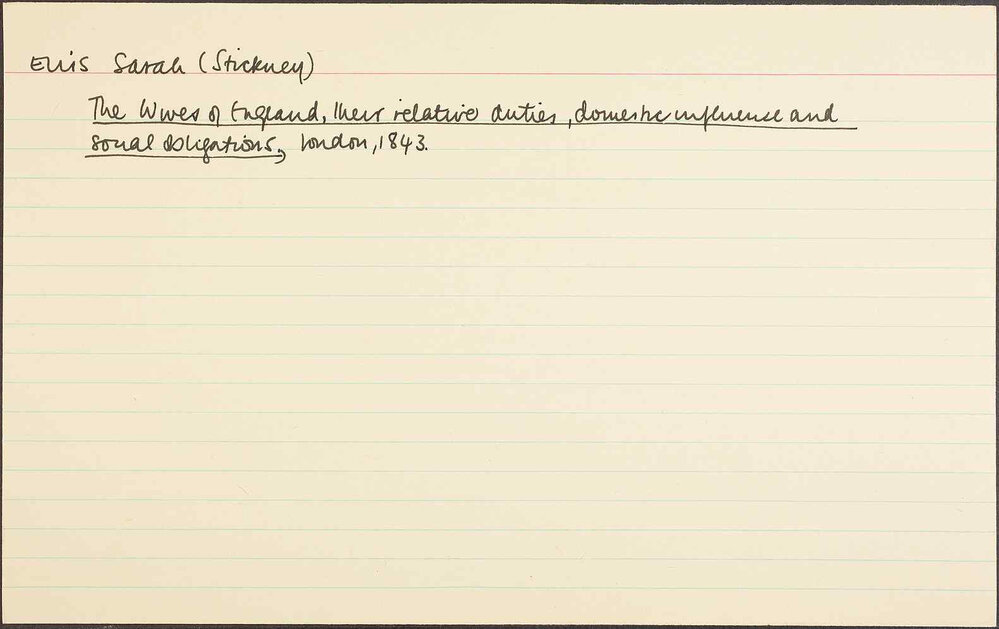 Ellis Sarah (Stickney)
The Wives of England, their relative duties, domestic influence and
social obligations, London, 1843.